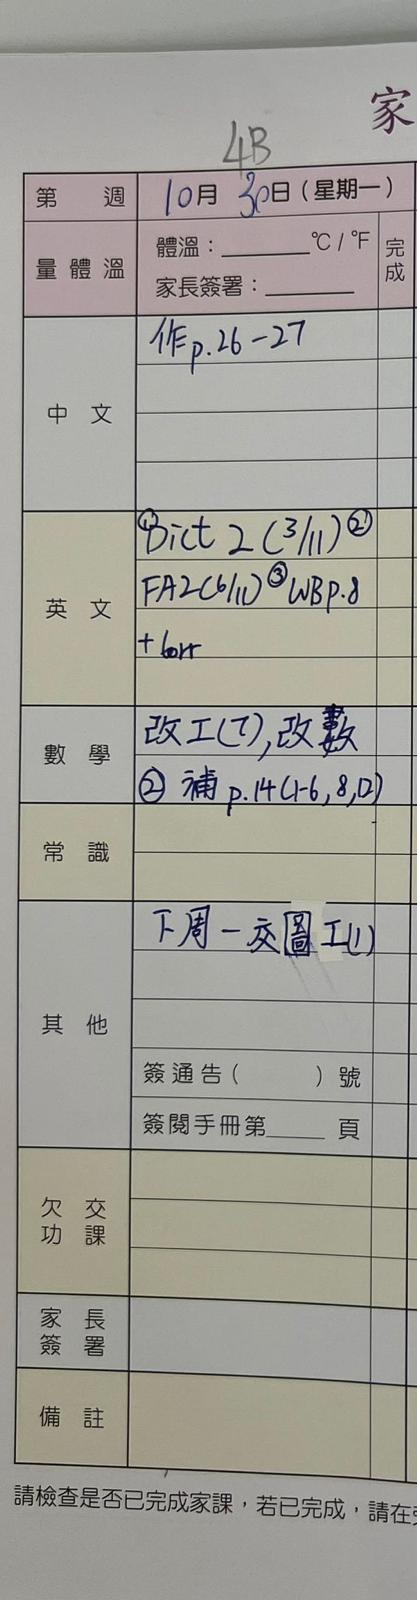 家
4B
第 週 10月 30日(星期一)
量體溫 體溫:______℃/℉ 完成
家長簽署:______
中文 作p.26-27
英文 ①Dict 2 (3/11) ②
FA2(6/11) ③WBp.8
+ corr
數學 改工(7), 改數
② 補 p.14(1-6, 8, 12)
常識
其他 下周一交圖工(1)
簽通告( )號
簽閱手冊第____頁
欠交功課
家長簽署
備註
請檢查是否已完成家課,若已完成,請在